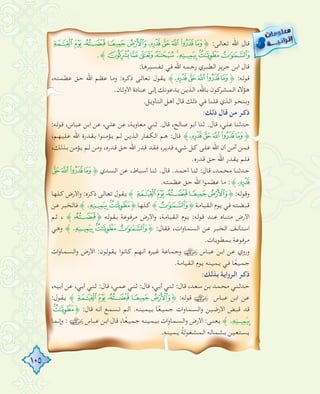 معلومات قرآنية
قال الله تعالى: ﴿ وَمَا قَدَرُوا۟ ٱللَّهَ حَقَّ قَدْرِهِۦ وَٱلْأَرْضُ جَمِيعًا قَبْضَتُهُۥ يَوْمَ ٱلْقِيَـٰمَةِ
وَٱلسَّمَـٰوَٰتُ مَطْوِيَّـٰتٌۢ بِيَمِينِهِۦ ۚ سُبْحَـٰنَهُۥ وَتَعَـٰلَىٰ عَمَّا يُشْرِكُونَ ﴾.
قال ابن جرير الطبري رحمه الله في تفسيرها:
قوله: ﴿ وَمَا قَدَرُوا۟ ٱللَّهَ حَقَّ قَدْرِهِۦ ﴾ يقول تعالى ذكره: وما عظم الله حق عظمته،
هؤلاء المشركون بالله، الذين يدعونك إلى عبادة الاوثان.
وبنحو الذي قلنا في ذلك قال أهل التأويل.
ذكر من قال ذلك:
حدثنا علي، قال. ثنا أبو صالح، قال. ثني معاوية، عن علي، عن ابن عباس، قوله:
﴿ وَمَا قَدَرُوا۟ ٱللَّهَ حَقَّ قَدْرِهِۦ ﴾ قال: هم الكفار الذين لم يؤمنوا بقدرة الله عليهم،
فمن آمن أن الله على كل شيء قدير، فقد قدر الله حق قدره، ومن لم يؤمن بذلك،
فلم يقدر الله حق قدره.
حدثنا محمد، قال: ثنا أحمد. قال. ثنا أسباط، عن السدي ﴿ وَمَا قَدَرُوا۟ ٱللَّهَ حَقَّ
قَدْرِهِۦ ﴾: ما عظموا الله حق عظمته.
وقوله: ﴿ وَٱلْأَرْضُ جَمِيعًا قَبْضَتُهُۥ يَوْمَ ٱلْقِيَـٰمَةِ ﴾ يقول تعالى ذكره: والارض كلها
قبضته في يوم القيامة ﴿ وَٱلسَّمَـٰوَٰتُ ﴾ كلها ﴿ مَطْوِيَّـٰتٌۢ بِيَمِينِهِۦ ﴾ فالخبر عن
الارض متناه عند قوله: يوم القيامة، والارض مرفوعة بقوله ﴿ قَبْضَتُهُۥ ﴾، ثم
استأنف الخبر عن السموات، فقال: ﴿ وَٱلسَّمَـٰوَٰتُ مَطْوِيَّـٰتٌۢ بِيَمِينِهِۦ ﴾ وهي
مرفوعة بمطويات.
وروي عن ابن عباس وجماعة غيره أنهم كانوا يقولون: الارض والسماوات
جميعًا في يمينه يوم القيامة.
ذكر الرواية بذلك:
حدثني محمد بن سعد، قال: ثني أبي، قال: ثني عمي، قال: ثني أبي، عن أبيه،
عن ابن عباس قوله: ﴿ وَٱلْأَرْضُ جَمِيعًا قَبْضَتُهُۥ يَوْمَ ٱلْقِيَـٰمَةِ ﴾ يقول:
قد قبض الارضين والسماوات جميعًا بيمينه. ألم تسمع أنه قال: ﴿ مَطْوِيَّـٰتٌۢ
بِيَمِينِهِۦ ﴾ يعني: الارض والسماوات بيمينه جميعًا، قال ابن عباس: وإنما
يستعين بشماله المشغولةُ يمينه.
١٠٥